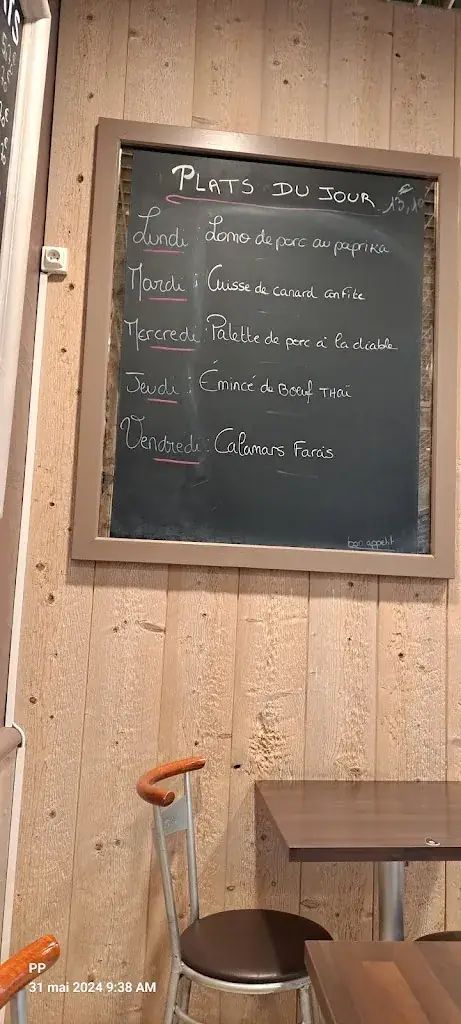 PLATS DU JOUR
Lundi : Lomo de porc au paprika
Mardi : Cuisse de canard confite
Mercredi : Palette de porc à la diable
Jeudi : Émincé de Boeuf THAÏ
Vendredi : Calamars Farcis
bon appetit
PP
31 mai 2024 9:38 AM